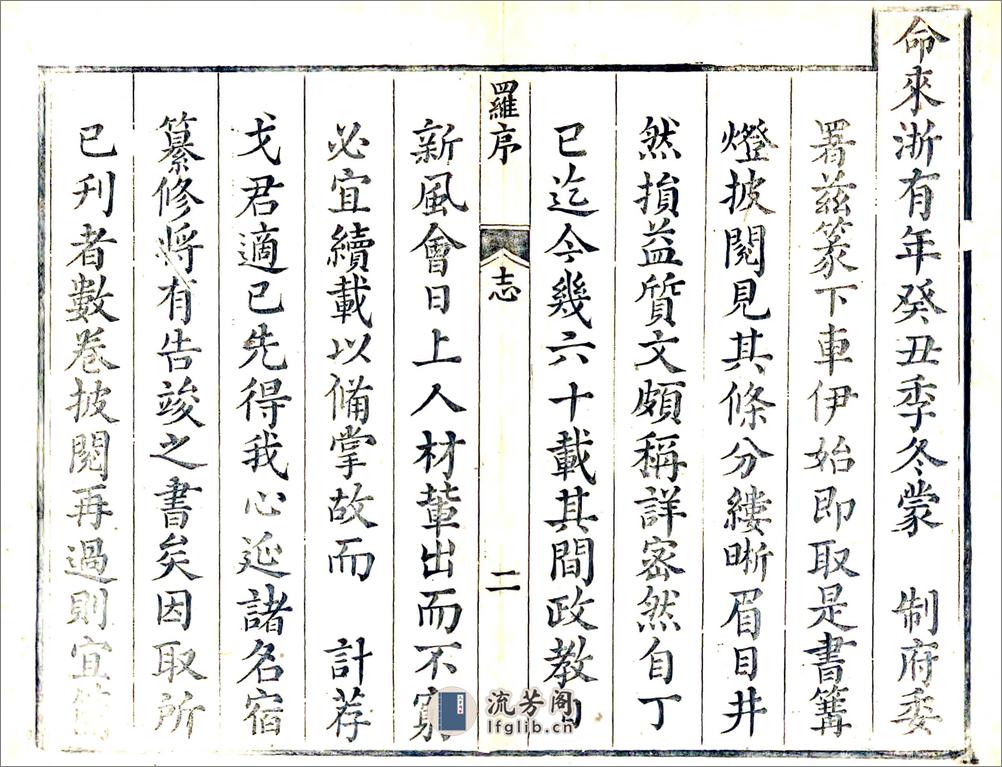 命來浙有年癸丑季冬蒙　制府委
署茲篆下車伊始即取是書篝
燈披閱見其條分縷晰眉目井
然損益質文頗稱詳密然自丁
已迄今幾六十載其間政教
羅序 志 二
新風會日上人材輩出而不窮
必宜續載以備掌故而　計荐
戈君適已先得我心延諸名宿
纂修將有告竣之書矣因取所
已刊者數卷披閱再過則宜
流芳阁
lfglib.cn